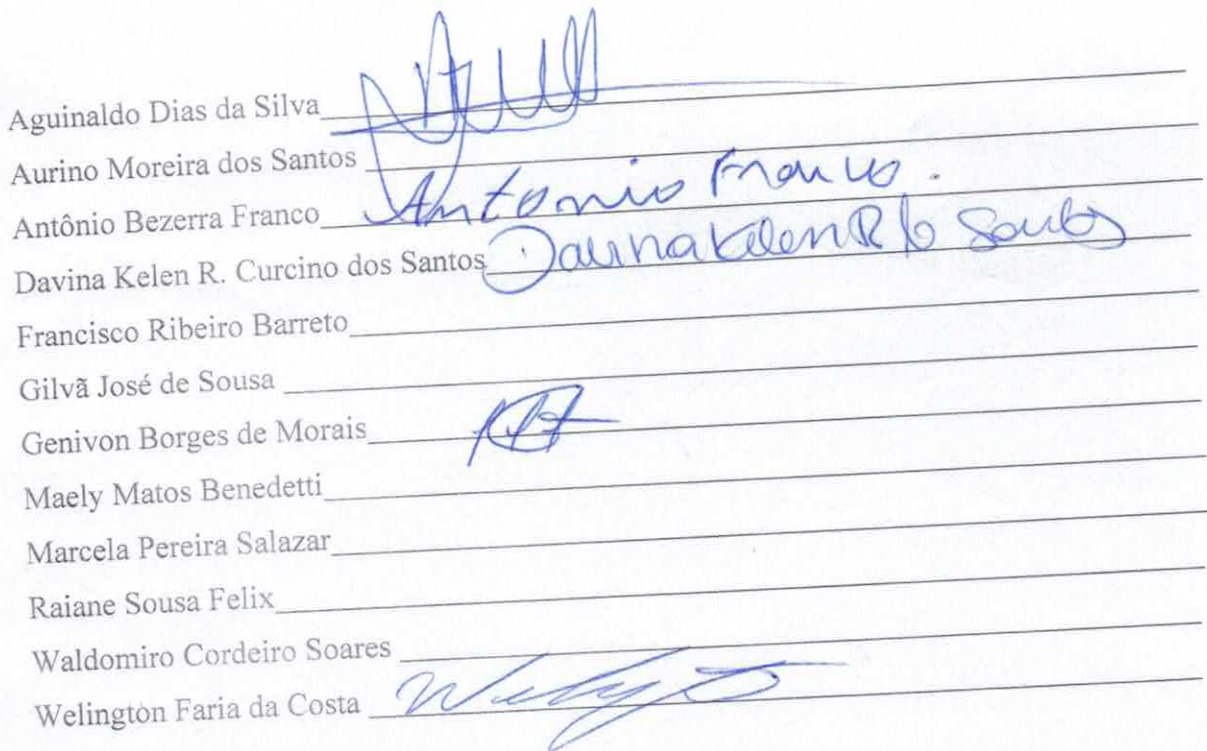 Aguinaldo Dias da Silva
Aurino Moreira dos Santos
Antônio Bezerra Franco Antonio Franco.
Davina Kelen R. Curcino dos Santos Davina Kelen R
Francisco Ribeiro Barreto
Gilvã José de Sousa
Genivon Borges de Morais
Maely Matos Benedetti
Marcela Pereira Salazar
Raiane Sousa Felix
Waldomiro Cordeiro Soares
Welington Faria da Costa